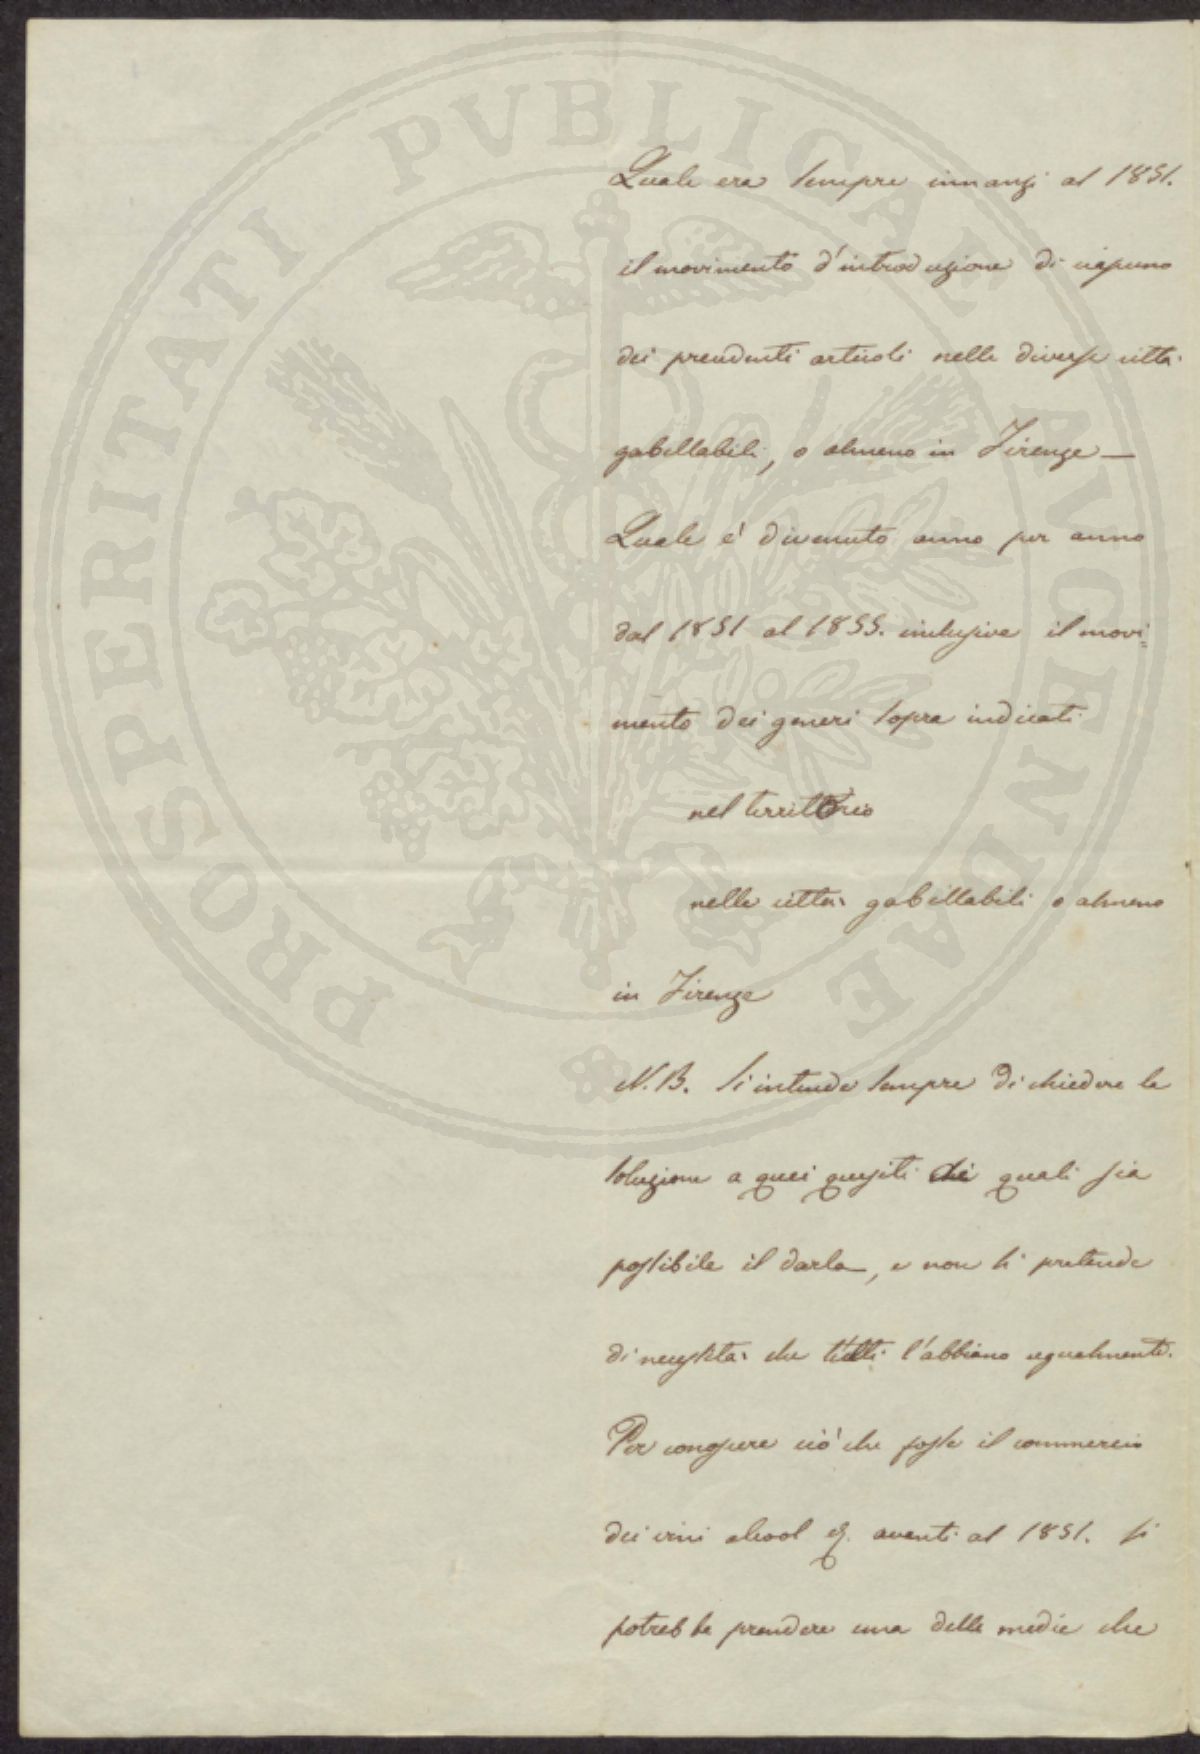 PROSPERITATI PVBLICAE AVGENDAE
Quale era sempre innanzi al 1851.
il movimento d'introduzione di ciascuno
dei precedenti articoli nelle diverse città
gabellabili, o almeno in Firenze —
Quale è divenuto anno per anno
dal 1851 al 1855. inclusive il movi=
mento dei generi sopra indicati
nel territorio
nelle città gabellabili o almeno
in Firenze
N.B. Si intende sempre di chiedere la
soluzione a quei quesiti dei quali sia
possibile il darla, e non si pretende
di necessità che tutti l'abbiano egualmente.
Per conoscere ciò che fosse il commercio
dei vini alcool &. avanti al 1851. si
potrebbe prendere una delle medie che